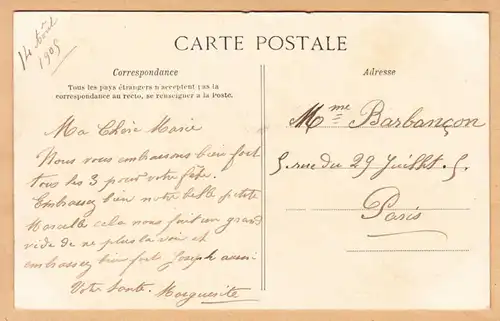 14 Août
1905
CARTE POSTALE
Correspondance
Tous les pays étrangers n'acceptent pas la
correspondance au recto, se renseigner à la Poste.
Adresse
Ma Chère Marie
Nous vous embrassons bien fort
tous les 3 pour votre fête.
Embrassez bien notre belle petite
Marcelle cela nous fait un grand
vide de ne plus la voir et
embrassez bien fort Joseph aussi
Votre tante. Marguerite
Mme Barbançon
5. rue du 29 Juillet. 5.
Paris